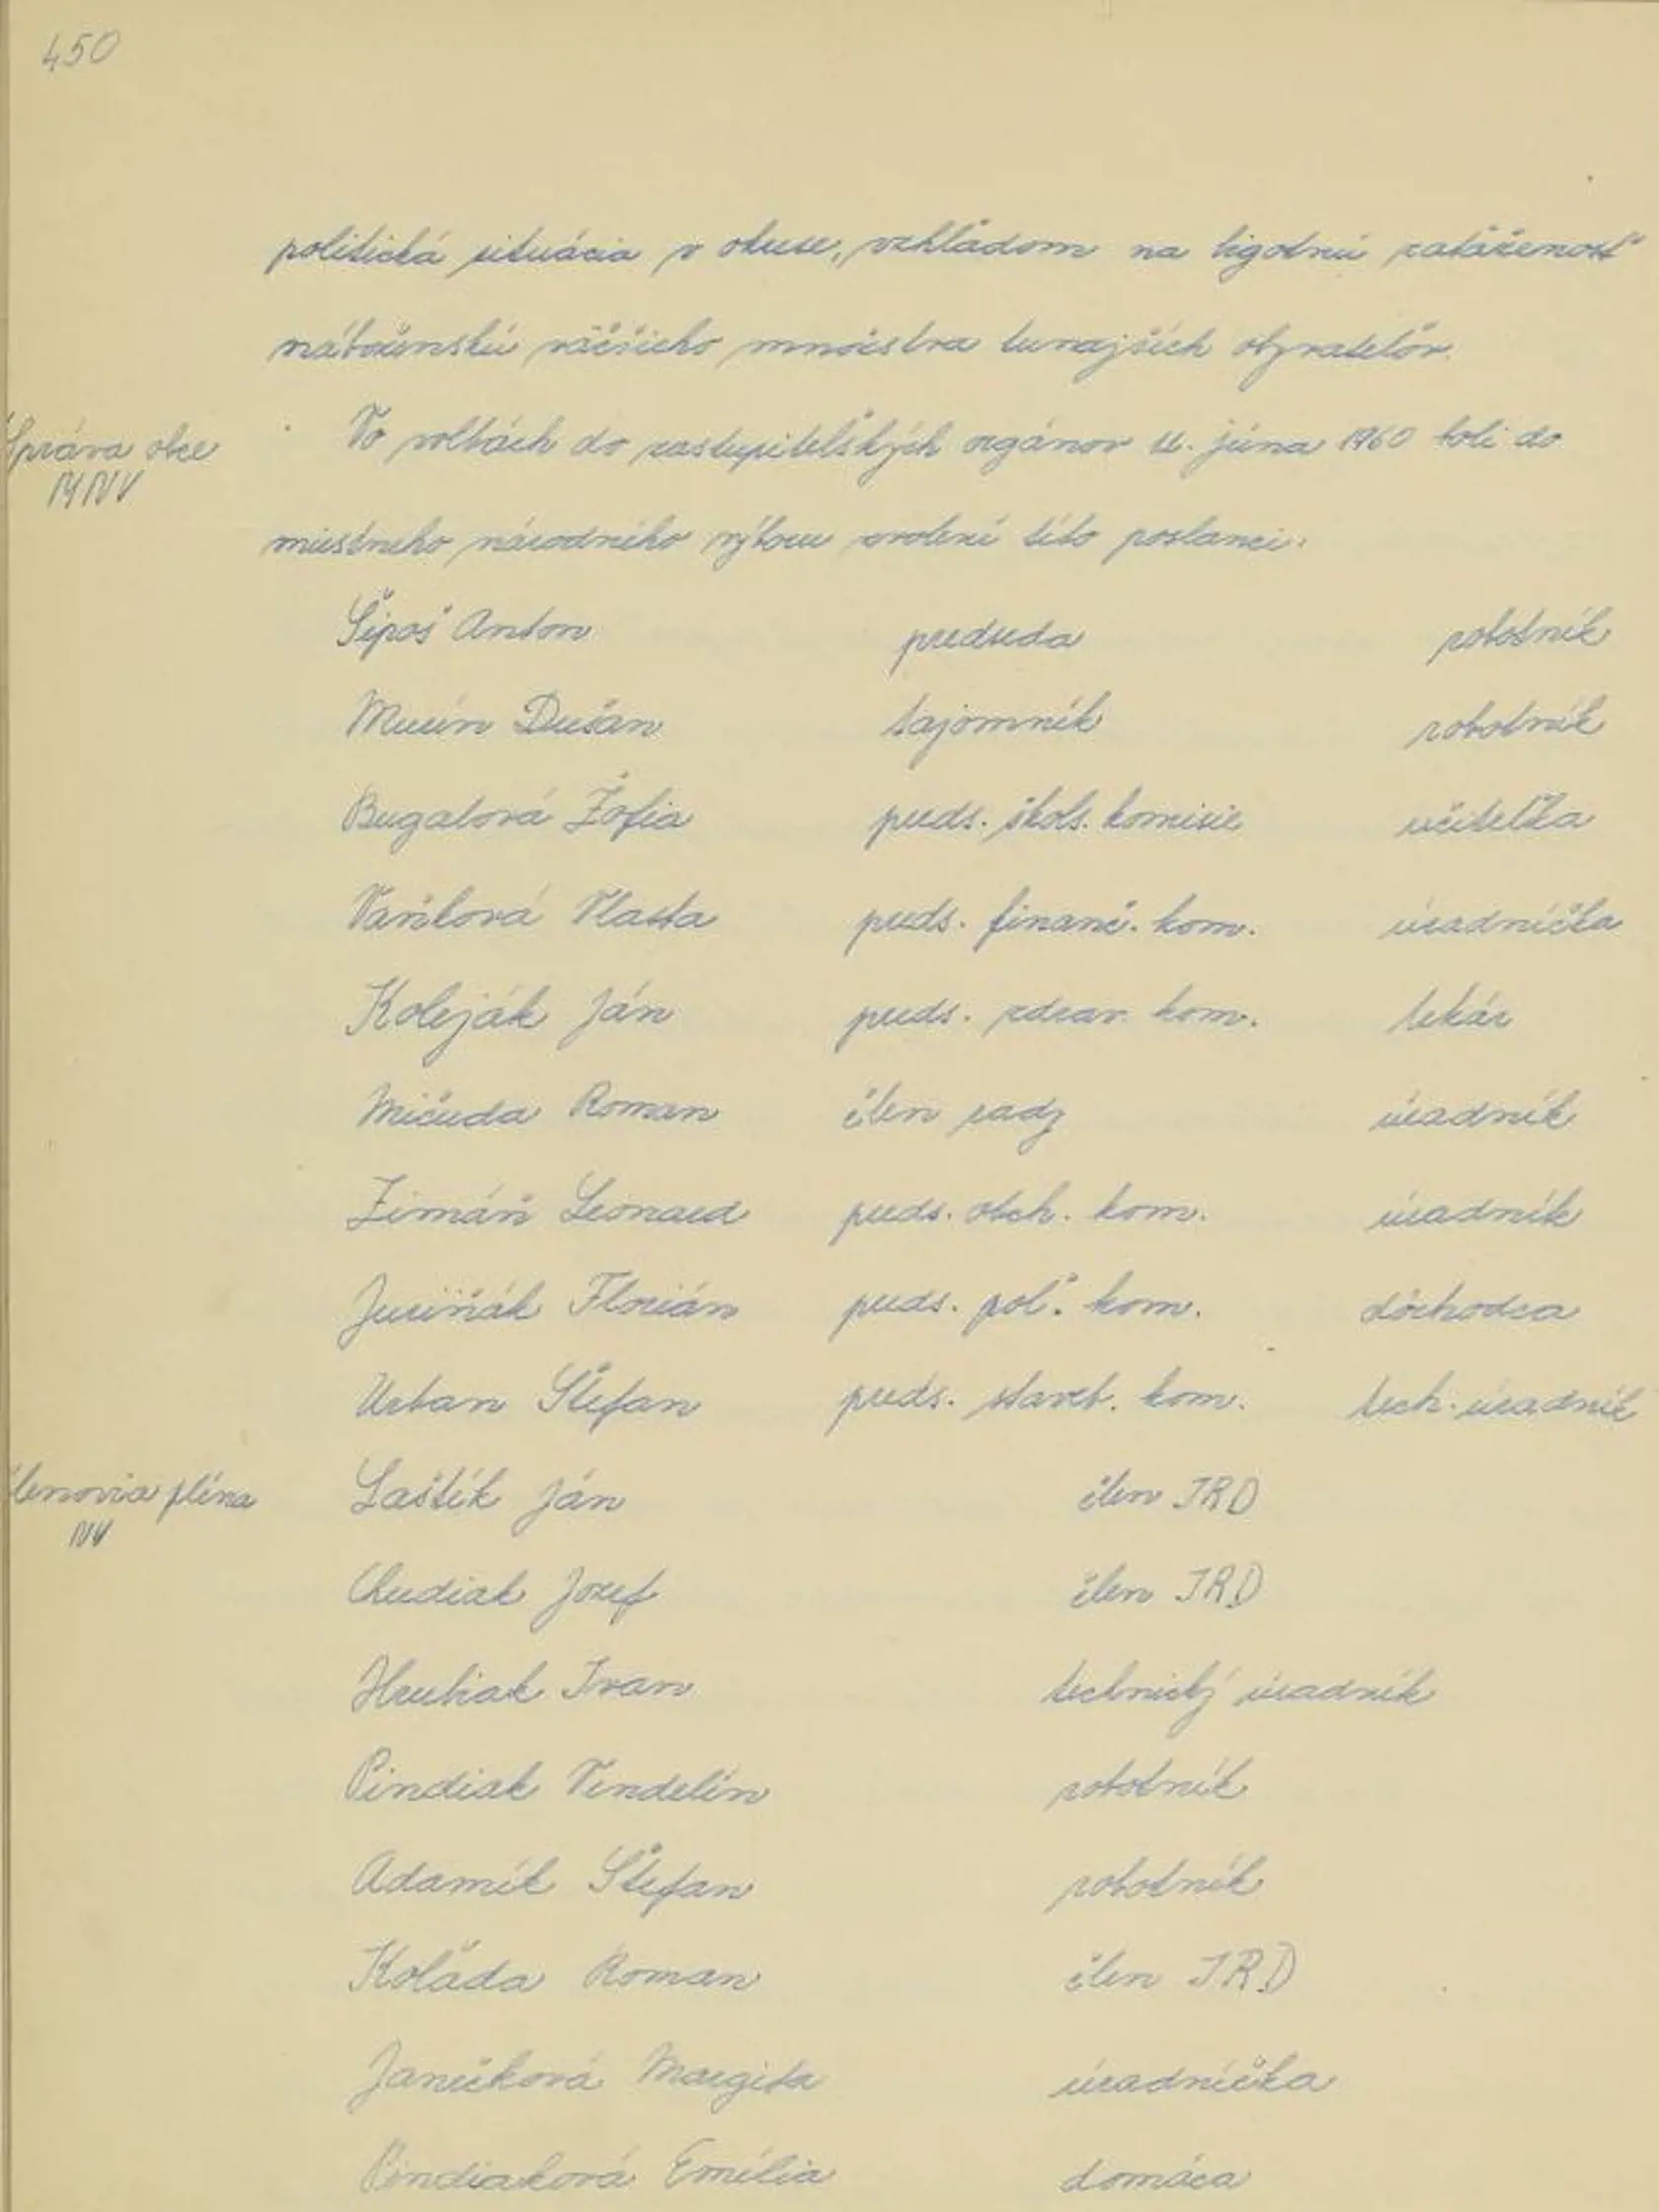 450
politická situácia v okrese, vzhľadom na bigotnú zaťaženosť
náboženskú väčšieho množstva tunajších obyvateľov.
Správa obce
MNV
Vo voľbách do zastupiteľských orgánov júna 1960 boli do
miestneho národného výboru zvolení títo poslanci:
Šípoš Anton predseda robotník
Murín Dušan tajomník robotník
Bugalová Žofia preds. škols. komisie učiteľka
Vaňková Vlasta preds. finanč. kom. úradníčka
Koleják Ján preds. zdrav. kom. lekár
Mičuda Roman člen rady úradník
Zimáň Leonard preds. obch. kom. úradník
Juriňák Florián preds. poľ. kom. dôchodca
Urban Štefan preds. staveb. kom. tech. úradník
členovia pléna
NV
Laštík Ján člen JRD
Chudiak Jozef člen JRD
Hrubiak Ivan technický úradník
Pindiak Vendelín robotník
Adamík Štefan robotník
Koláda Roman člen JRD
Janíčková Margita úradníčka
Pindiaková Emília domáca